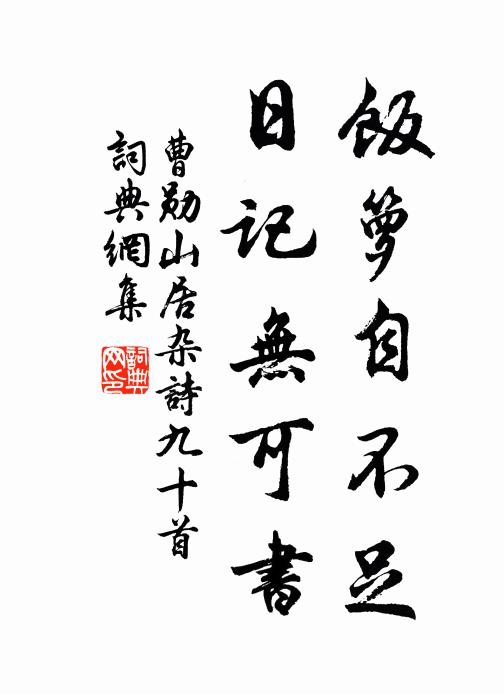 飯箩自不足
日記無可書
曹勋山居杂詩九十首
詞典網集
詞典网印